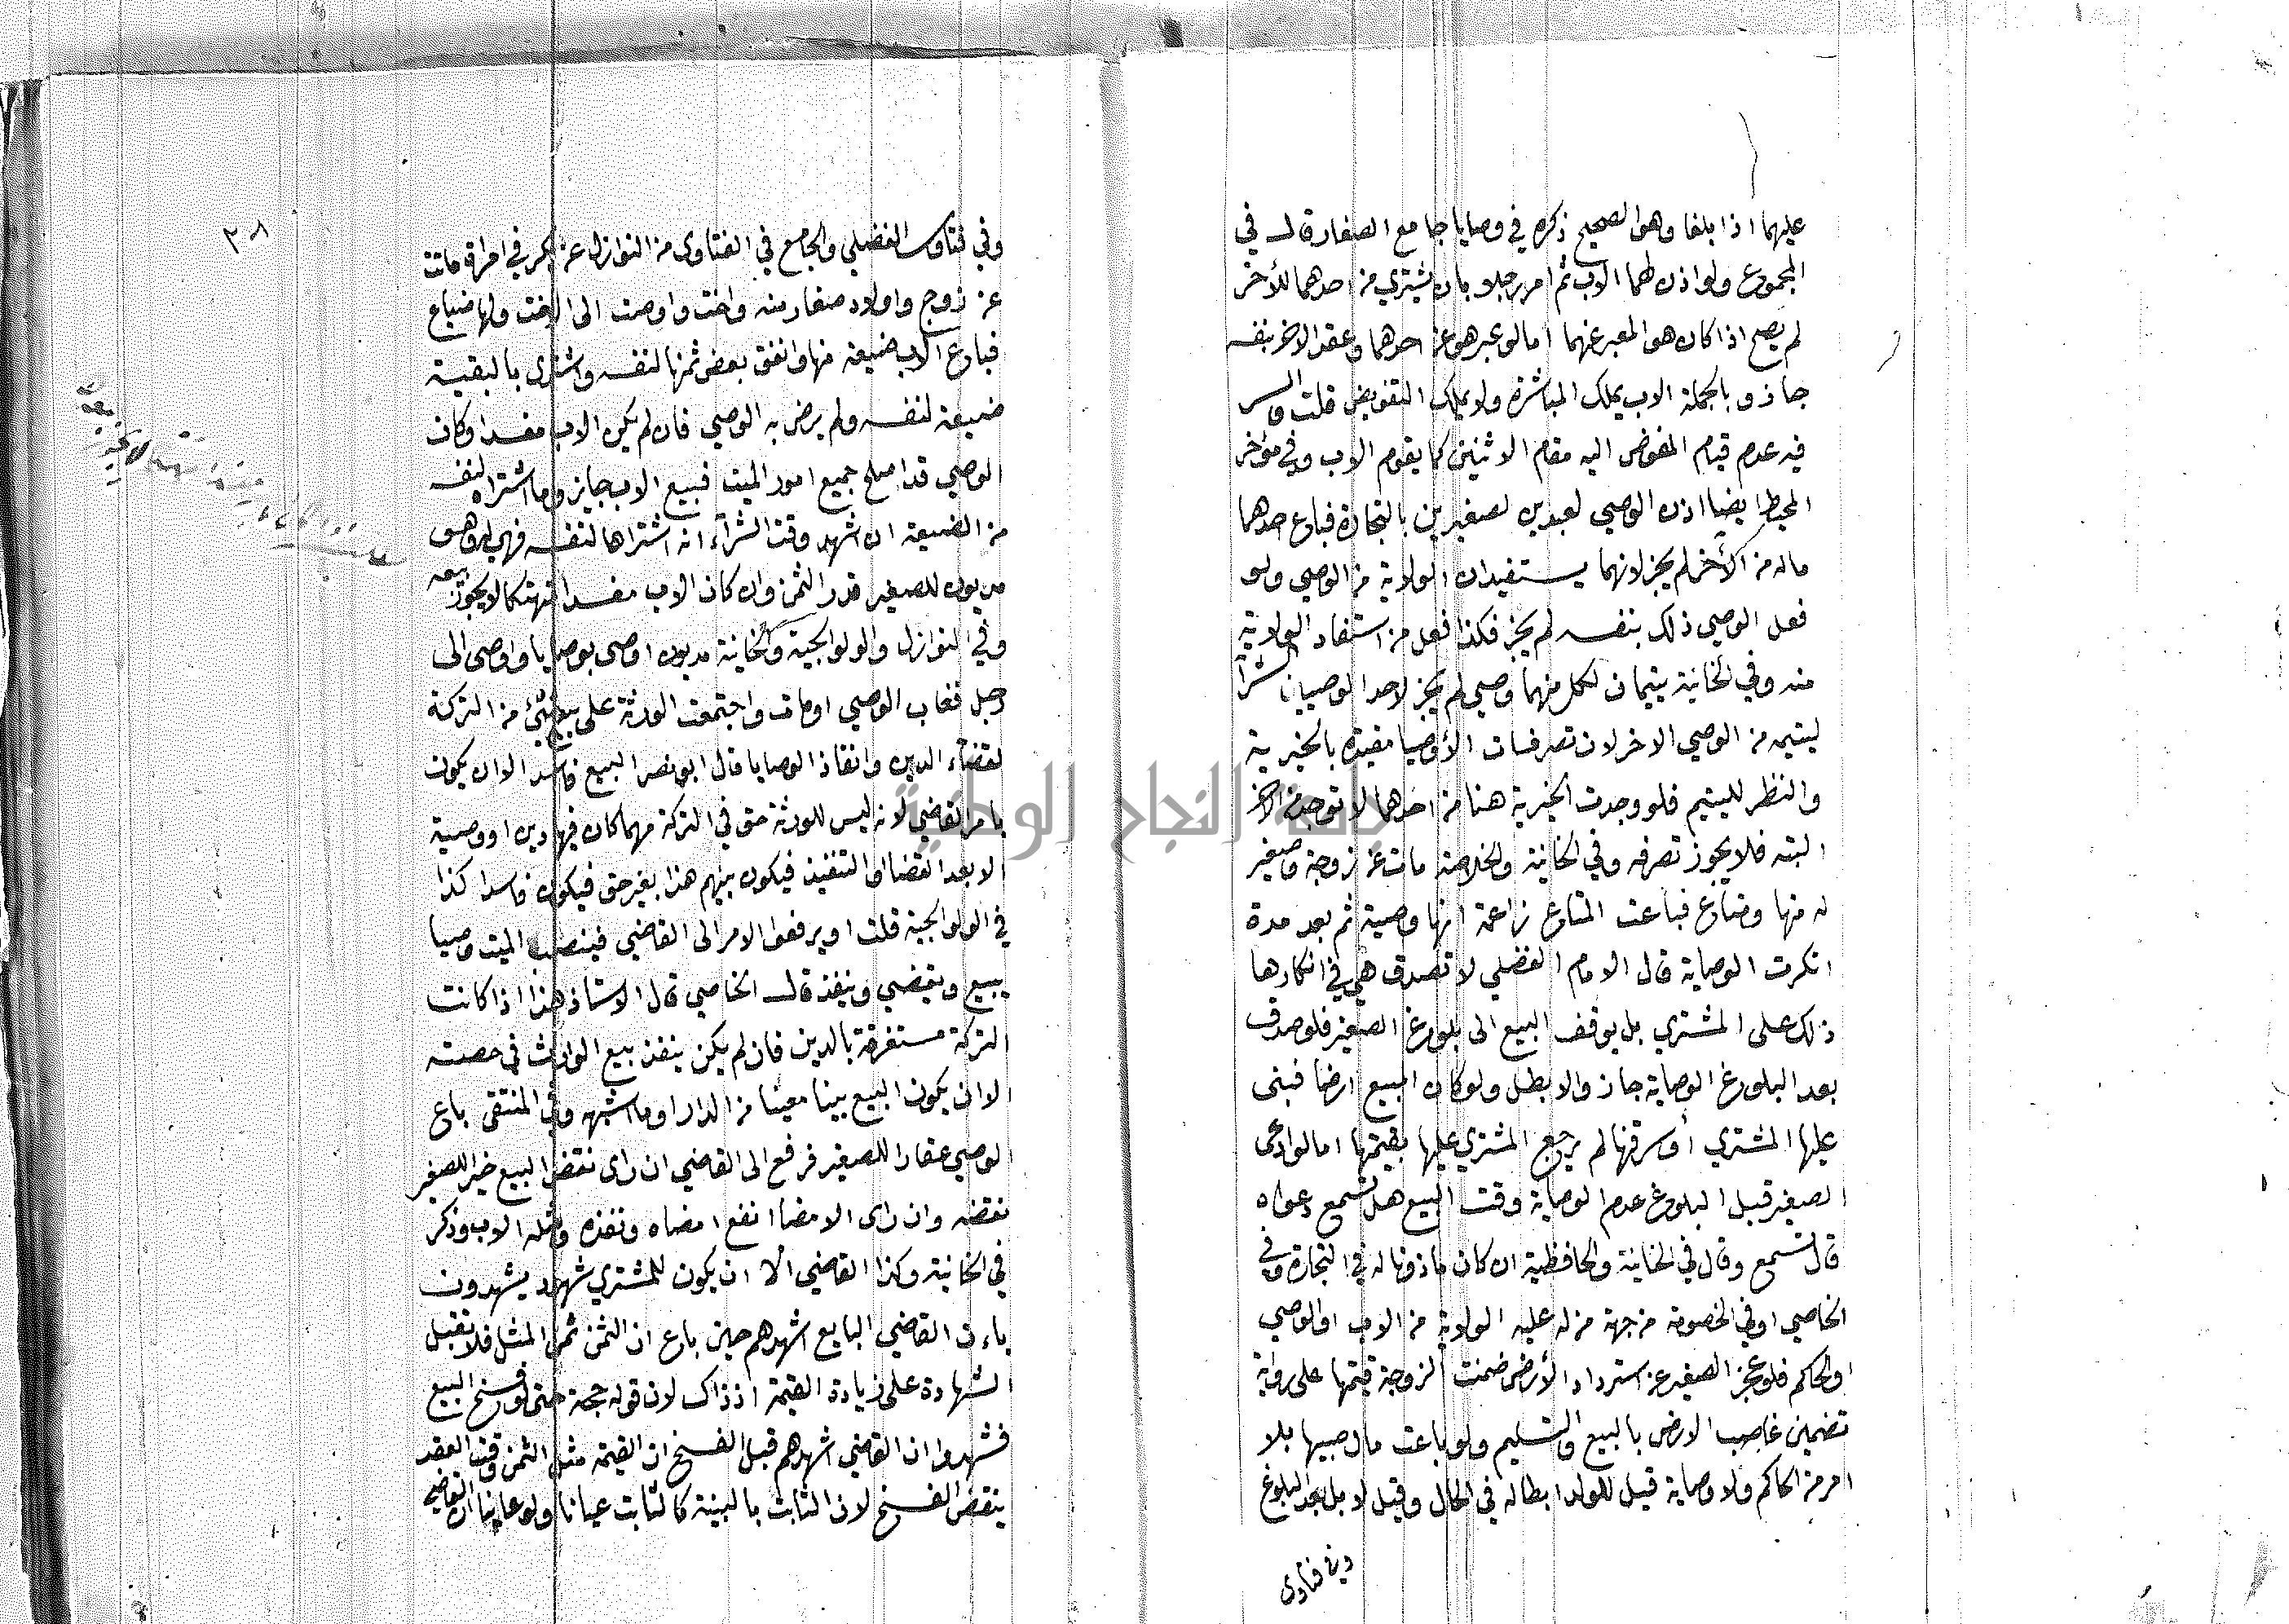 عليهما اذا بلغا وهو الصحيح ذكره في وصايا جامع الصغار قال في
المجموع ولو اذن لهما الاب ثم امر رجلا بان يشتري من احدهما للأخر
لم يصح اذا كان هو المعبر عنهما امالو عبر هو عن احدهما وعقد الاخر بنفسه
جاز وبالجملة الاب يملك المباشرة ولا يملك التفويض قلت والسر
فيه عدم قيام المفوض اليه مقام الاثنين كما يقوم الاب وفي مؤخر
المحيط ايضا اذن الوصي لعبدين لصغيرين بالتجارة فباع احدهما
ماله من الأخر لم يجز لانهما يستفيدان الولاية من الوصي ولو
فعل الوصي ذلك بنفسه لم يجز فكذا فعل من استفاد الولاية
منه وفي الخانية يتيمان لكل منهما وصي لم يجز لاحد الوصيين الشرآ
ليتيمه من الوصي الاخر لان تصرفات الأوصيا مقيدة بالخيرية
والنظر لليتيم فلو وجدت الخيرية هنا من احدهما لا توجد من الاخر
البتة فلا يجوز تصرفه وفي الخانية والخلاصة مات عن زوجة وصغير
له منها وضياع فباعت المتاع زاعمة انها وصية ثم بعد مدة
انكرت الوصاية قال الامام الفضلي لا تصدق هي في انكارها
ذلك على المشتري بل يوقف البيع الى بلوغ الصغير فلو صدق
بعد البلوغ الوصاية جاز والا بطل ولو كان المبيع ارضا فبنى
عليها المشتري أو سرقنها لم يرجع المشتري عليها بقيمتها امالو ادعى
الصغير قبل البلوغ عدم الوصاية وقت البيع هل تسمع دعواه
قال تسمع وقال في الخانية والحافظية ان كان ماذونا له في التجارة وفي
الخاصي او في الخصومة من جهة من له عليه الولاية من الاب او الوصي
او الحاكم فلو عجز الصغير عن استرداد الأرض ضمنت الزوجة قيمتها على رواية
تضمين غاصب الارض بالبيع والتسليم ولو باعت مال صبيها بلا
امر من الحاكم ولا وصاية قيل للولد ابطاله في الحال وقيل لا بل بعد البلوغ
وفي فتاوى
٣٠٨
وفي فتاوى الفضلي والجامع في الفتاوى من النوازل عن بكر في امرأة ماتت
عن زوج واولاد صغار منه واخت واوصت الى الاخت ولها ضياع
فباع الاب ضيعة منها وانفق بعض ثمنها لنفسه واشترى بالبقية
ضيعة لنفسه ولم يرض به الوصي فان لم يكن الاب مفسدا وكان
الوصي قد اصلح جميع امور الميت فبيع الاب جايز وما اشتراه لنفسه
من الضيعة ان اشهد وقت الشرآء انه اشتراها لنفسه فهي له وهو
مديون للصغير قدر الثمن وان كان الاب مفسدا متهتكا لا يجوز بيعه
وفي النوازل والولوالجية والخانية مديون اوصى بوصايا واوصى الى
رجل فغاب الوصي او مات واجتمعت الورثة على بيع شئ من التركة
لقضآء الدين وانفاذ الوصايا قال ابو نصر البيع فاسد الا ان يكون
بامر القاضي لانه ليس للورثة حق في التركة مهما كان فيها دين او وصية
الا بعد القضا او التنفيذ فيكون بيعهم هذا بغير حق فيكون فاسدا كذا
في الولوالجية قلت او يرفعوا الامر الى القاضي فينصب للميت وصيا
يبيع ويقضي وينفذ قال الخاصي قال الاستاذ هذا اذا كانت
التركة مستغرقة بالدين فان لم يكن ينفذ بيع الوارث في حصته
الا ان يكون البيع بيتا معينا من الدار او ما اشبهه وفي المنتقى باع
الوصي عقارا للصغير فرفع الى القاضي ان راى نقض البيع خيرا للصغير
نقضه وان راى الامضا انفع امضاه ونفذه ومثله الاب وذكر
في الخانية وكذا القاضي ألا ان يكون للمشتري شهود يشهدون
بان القاضي البايع اشهدهم حين باع ان الثمن ثمن المثل فلا تقبل
الشهادة على زيادة القيمة اذ ذاك لان قوله حجة حتى لو فسخ البيع
فشهدوا ان القاضي اشهدهم قبل الفسخ ان القيمة مثل الثمن وقت العقد
ينقض الفسخ لان الثابت بالبينة كالثابت عيانا ولو عاينا ان القاضي
جامعة النجاح الوطنية